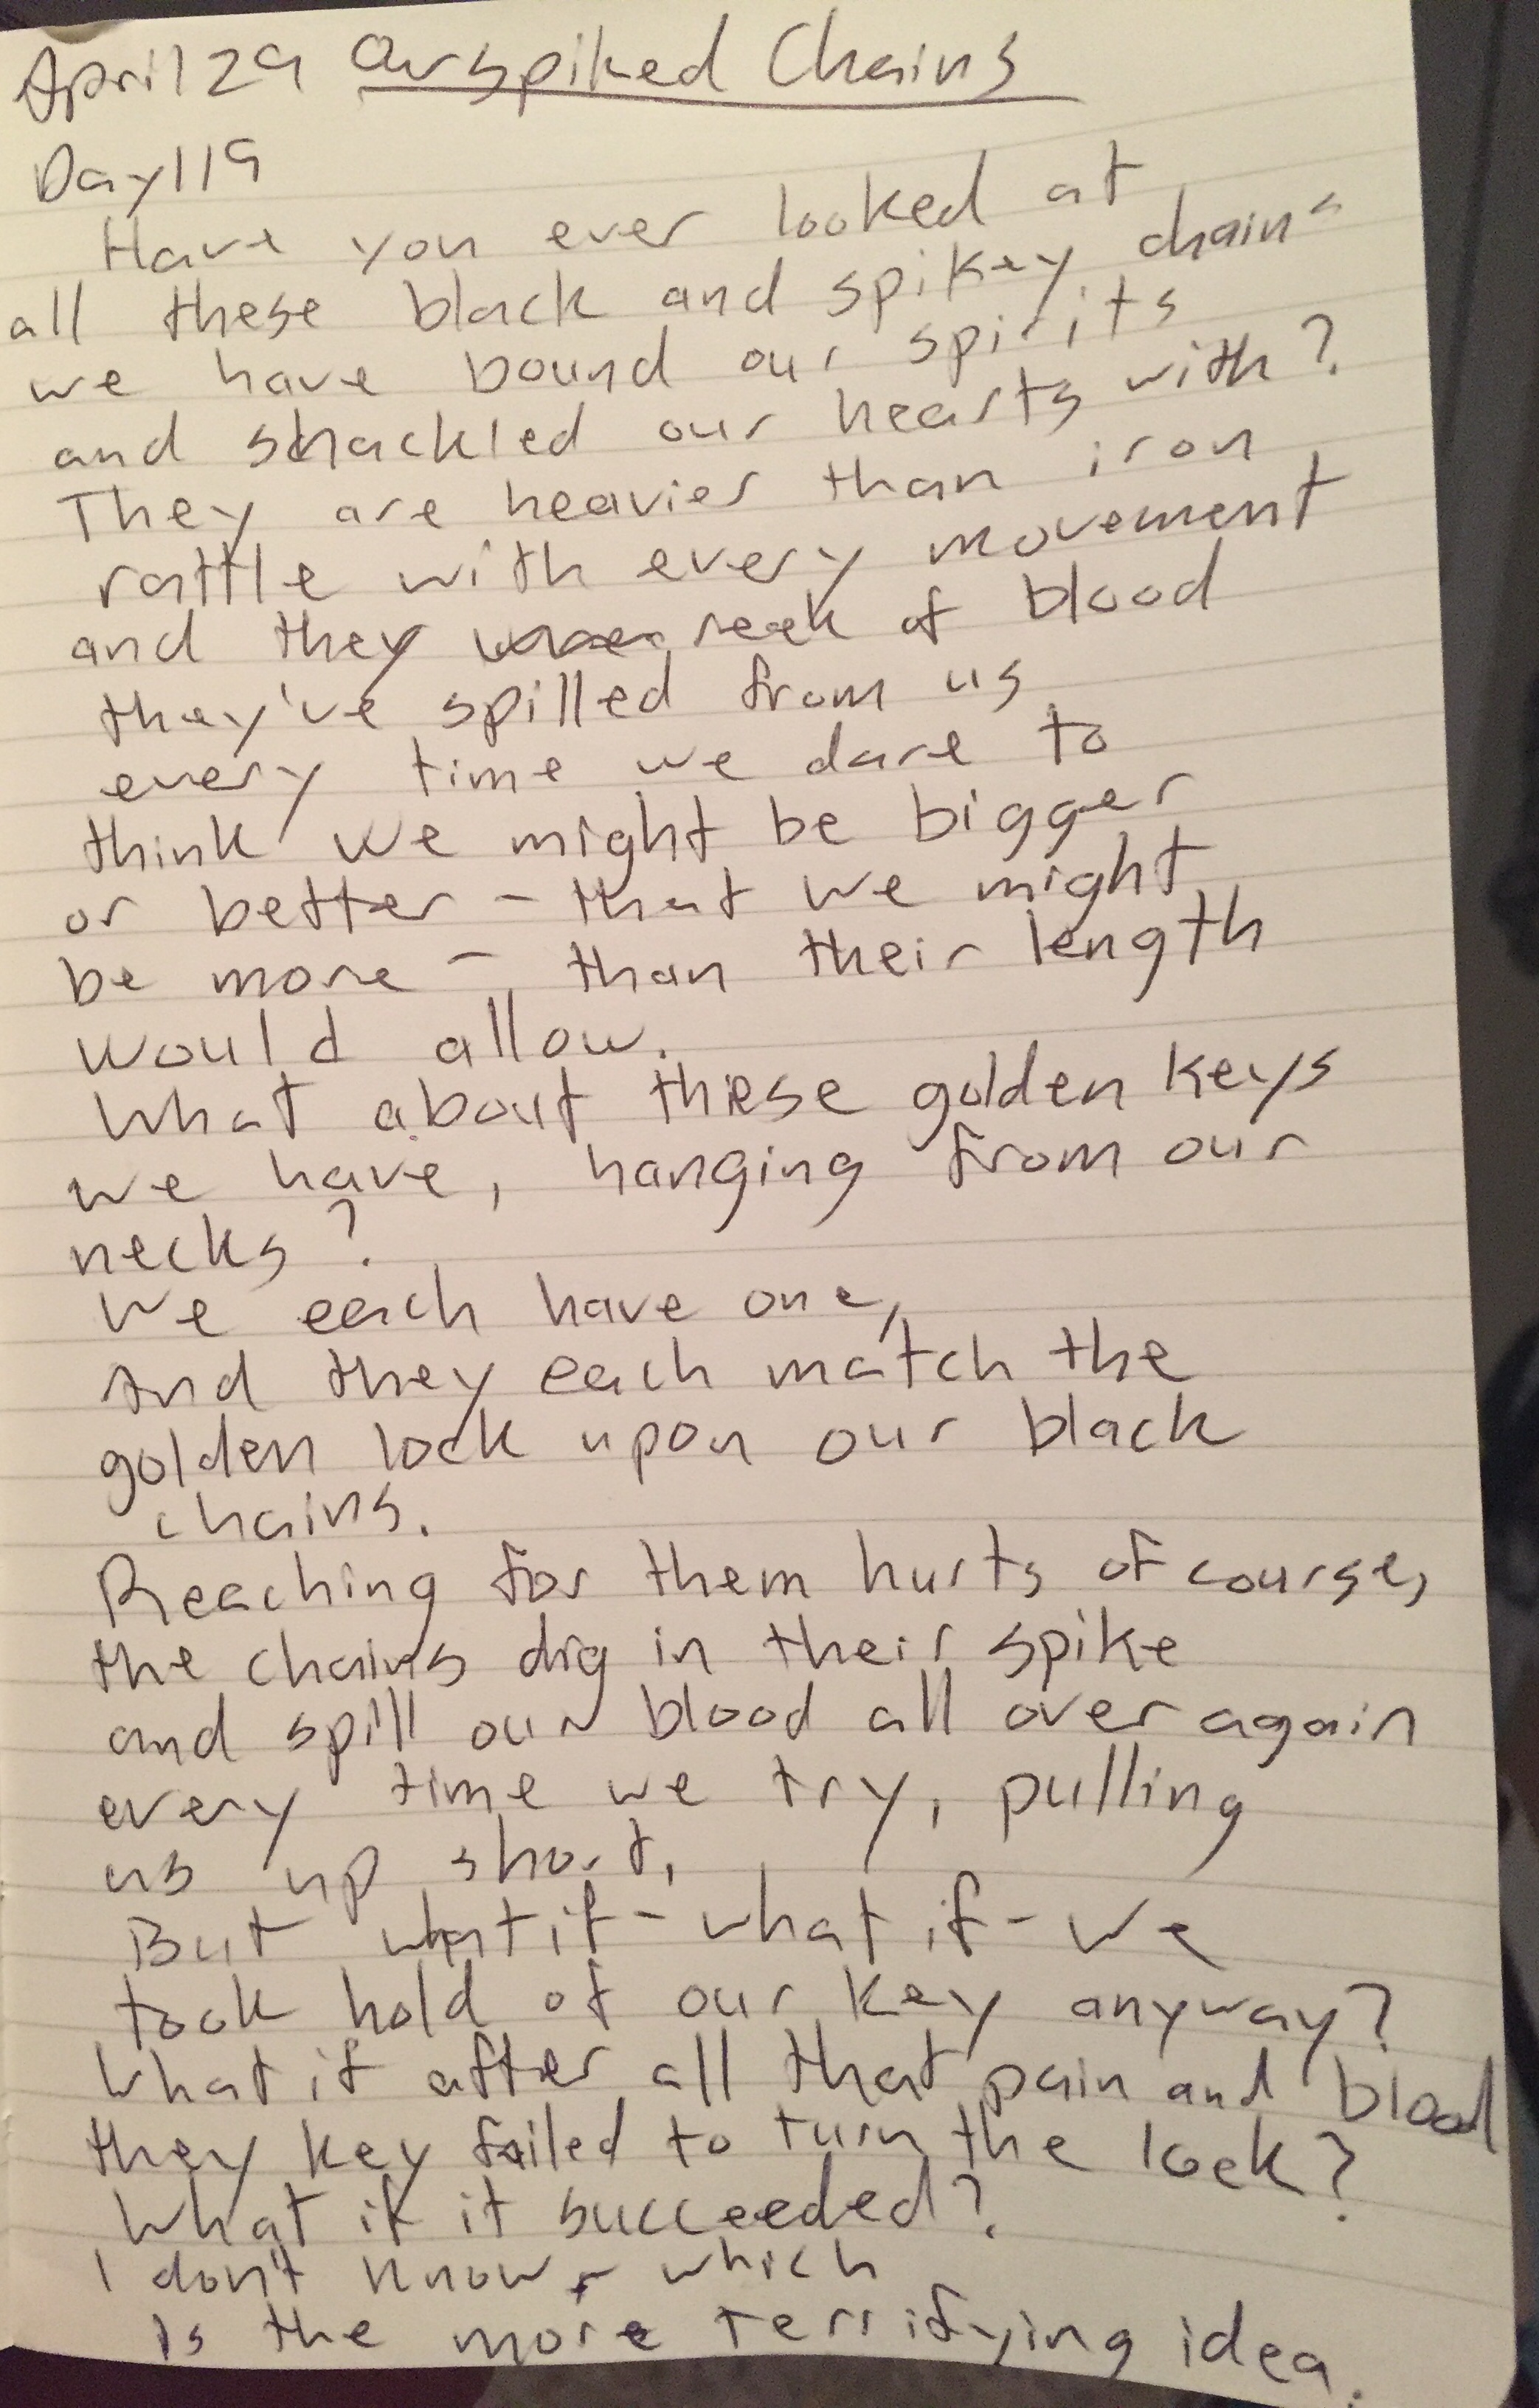 April 29 Our spiked Chains
Day 119
Have you ever looked at
all these black and spikey chains
we have bound our spirits
and shackled our hearts with?
They are heavier than iron
rattle with every movement
and they reek of blood
they've spilled from us
every time we dare to
think we might be bigger
or better - that we might
be more - than their length
would allow.
What about these golden keys
we have, hanging from our
necks?
We each have one,
And they each match the
golden lock upon our black
chains.
Reaching for them hurts of course,
the chains dig in their spike
and spill our blood all over again
every time we try, pulling
us up short.
But what if - what if - we
took hold of our key anyway?
What if after all that pain and blood
they key failed to turn the lock?
What if it succeeded?
I don't know - which
is the more terrifying idea.